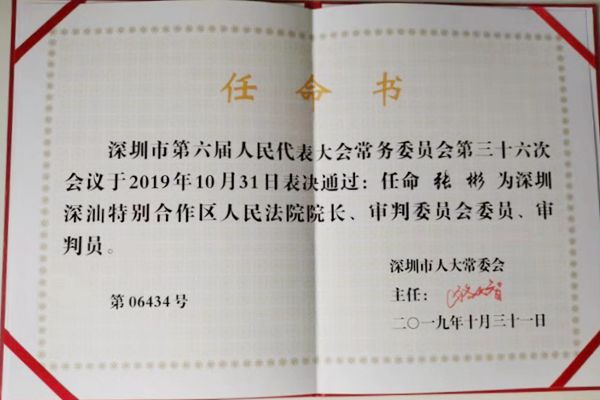 任命书
深圳市第六届人民代表大会常务委员会第三十六次
会议于2019年10月31日表决通过：任命 张 彬 为深圳
深汕特别合作区人民法院院长、审判委员会委员、审
判员。
深圳市人大常委会
第06434号
主任：
二〇一九年十月三十一日